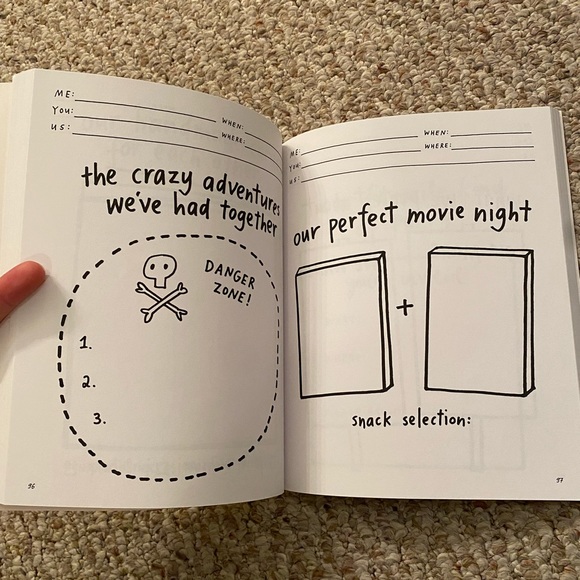 ME:
YOU:
US:
WHEN:
WHERE:
the crazy adventures
we've had together
DANGER
ZONE!
1.
2.
3.
ME:
YOU:
US:
WHEN:
WHERE:
our perfect movie night
+
snack selection:
57